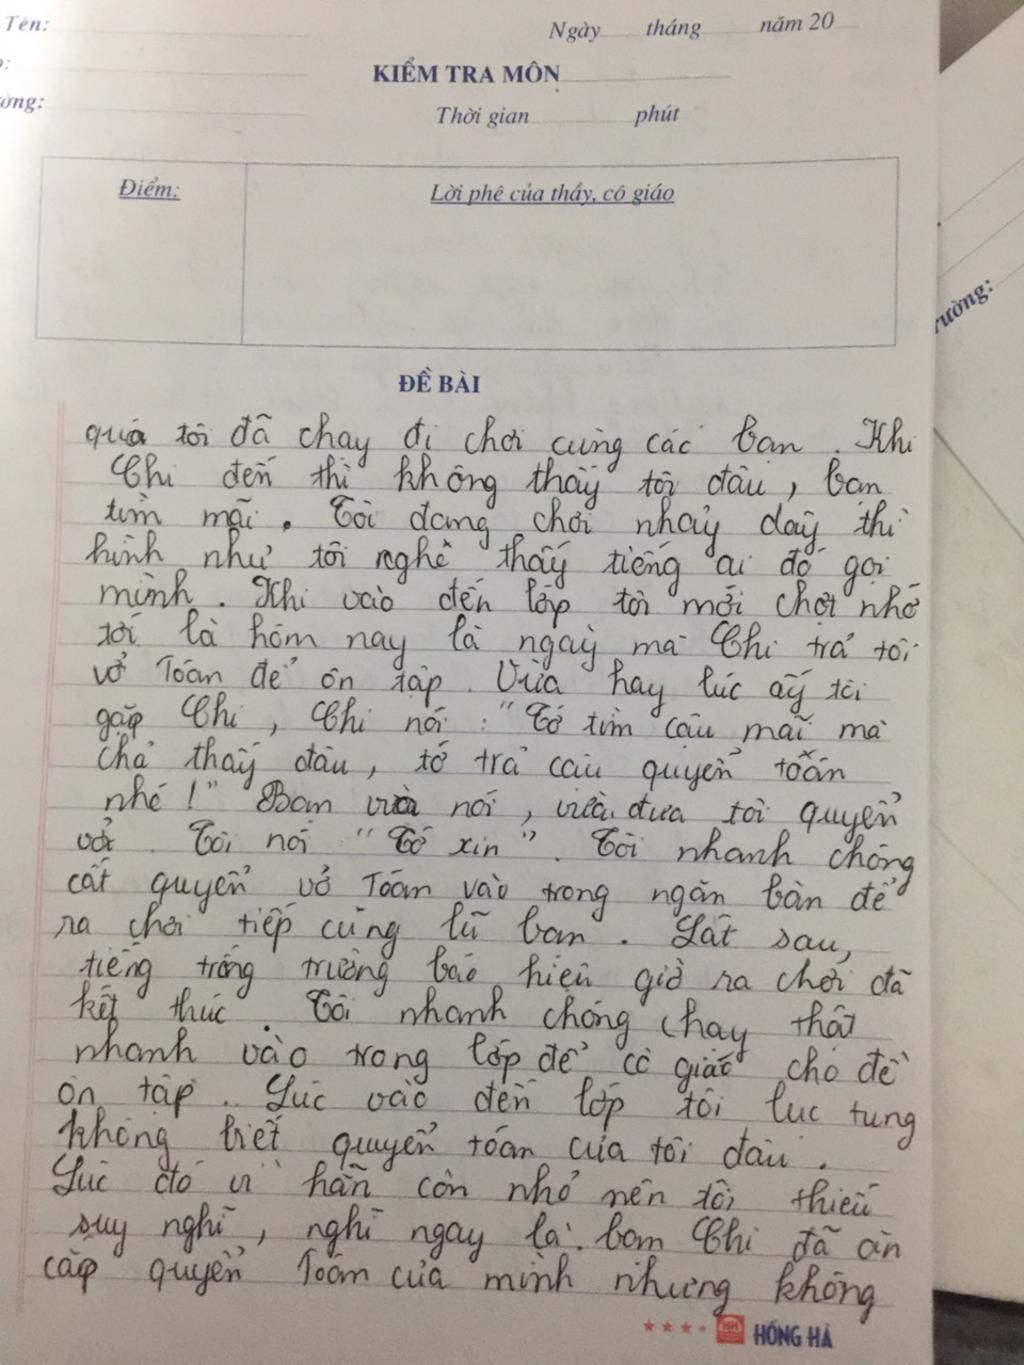 Tên:
Ngày tháng năm 20
KIỂM TRA MÔN
ờng:
Thời gian phút
Điểm:
Lời phê của thầy, cô giáo
rường:
ĐỀ BÀI
quá tôi đã chạy đi chơi cùng các bạn. Khi
Chi đến thì không thấy tôi đâu, bạn
tìm mãi. Tôi đang chơi nhảy dây thì
hình như tôi nghe thấy tiếng ai đó gọi
mình. Khi vào đến lớp tôi mới chợt nhớ
tới là hôm nay là ngày mà Chi trả tôi
vở Toán để ôn tập. Vừa hay lúc ấy tôi
gặp Chi, Chi nói: "Tớ tìm cậu mãi mà
chả thấy đâu, tớ trả cậu quyển toán
nhé!" Bạn vừa nói, vừa đưa tôi quyển
vở. Tôi nói "Tớ xin". Tôi nhanh chóng
cất quyển vở Toán vào trong ngăn bàn để
ra chơi tiếp cùng lũ bạn. Lát sau,
tiếng trống trường báo hiệu giờ ra chơi đã
kết thúc. Tôi nhanh chóng chạy thật
nhanh vào trong lớp để cô giáo cho đề
ôn tập. Lúc vào đến lớp tôi lục tung
không biết quyển toán của tôi đâu.
Lúc đó vì hãn còn nhỏ nên tôi thiếu
suy nghĩ, nghĩ ngay là bạn Chi đã ăn
cắp quyển Toán của mình nhưng không
HH HỒNG HÀ